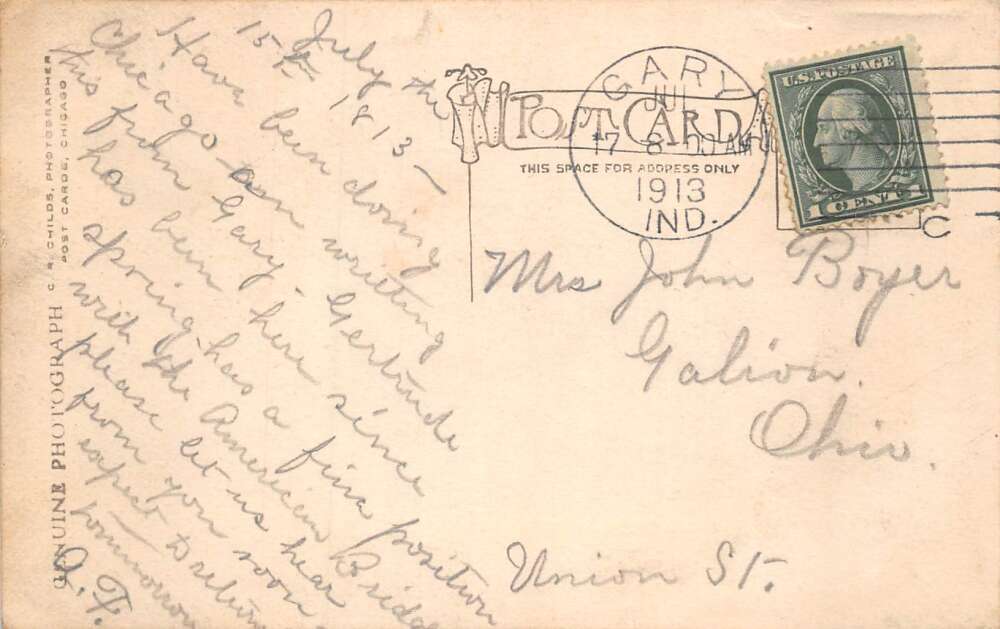 July the
15th 1913 —
Have been doing
Chicago - am writing
this from Gary - Gertrude
has been here since
spring - has a fine position
with the American Bridge
please let us hear
from you soon
expect to return
tomorrow
POST CARD
THIS SPACE FOR ADDRESS ONLY
GARY
JUL
17 8 00 AM
1913
IND.
U.S. POSTAGE
1 CENT 1
C
Mrs John Boyer
Galion.
Ohio.
Union St.
GENUINE PHOTOGRAPH C. R. CHILDS, PHOTOGRAPHER
POST CARDS, CHICAGO